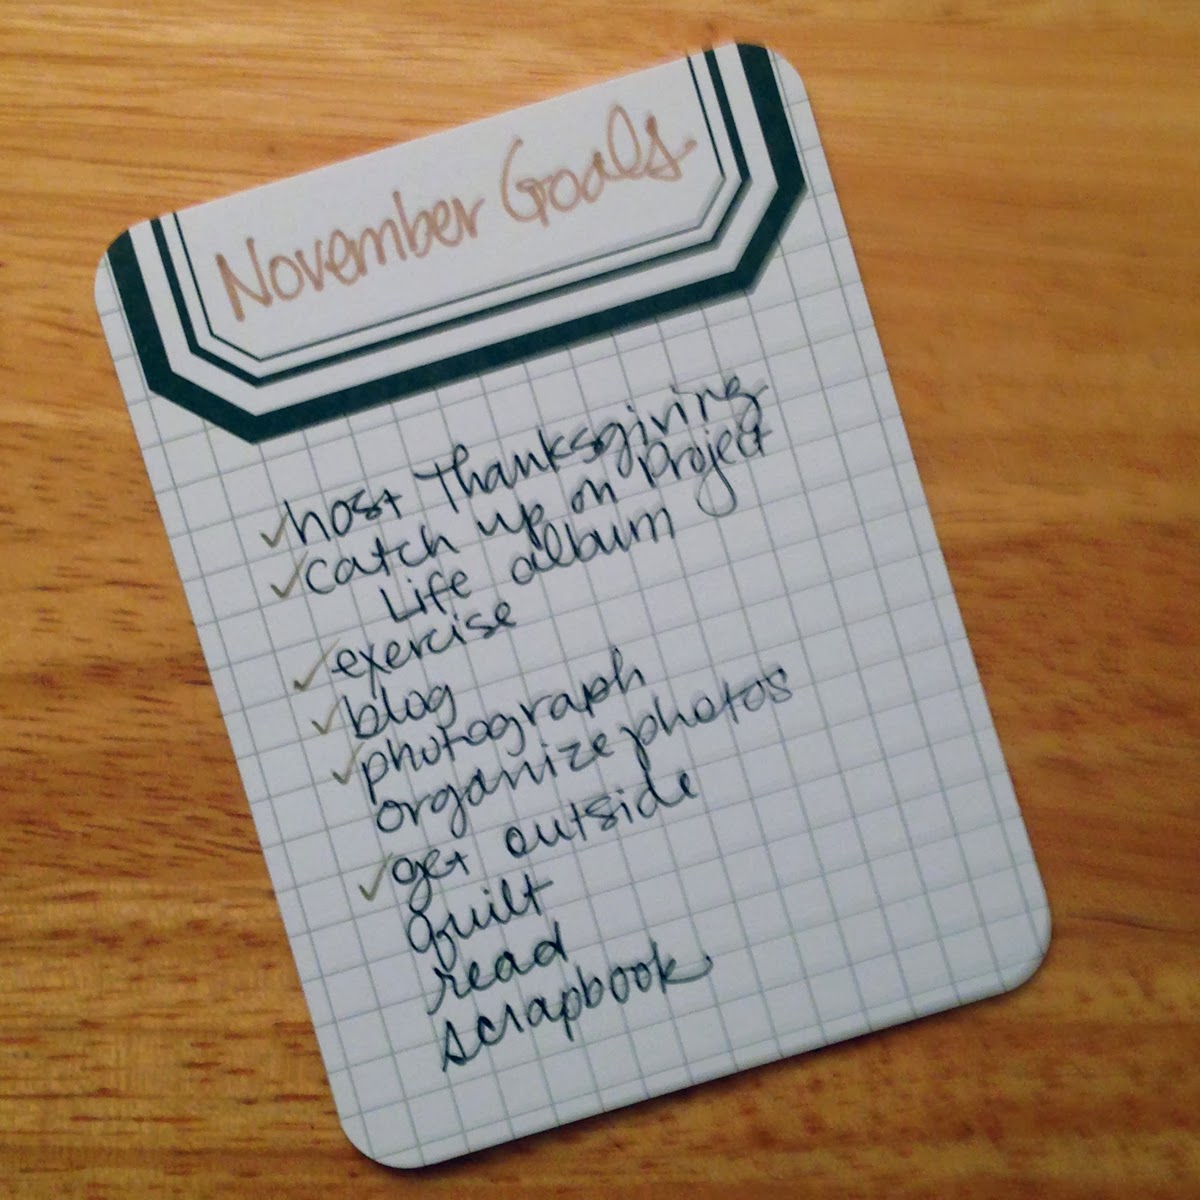 November Goals
✓ host Thanksgiving
✓ catch up on Project
Life album
✓ exercise
✓ blog
✓ photograph
organize photos
✓ get outside
quilt
read
scrapbook